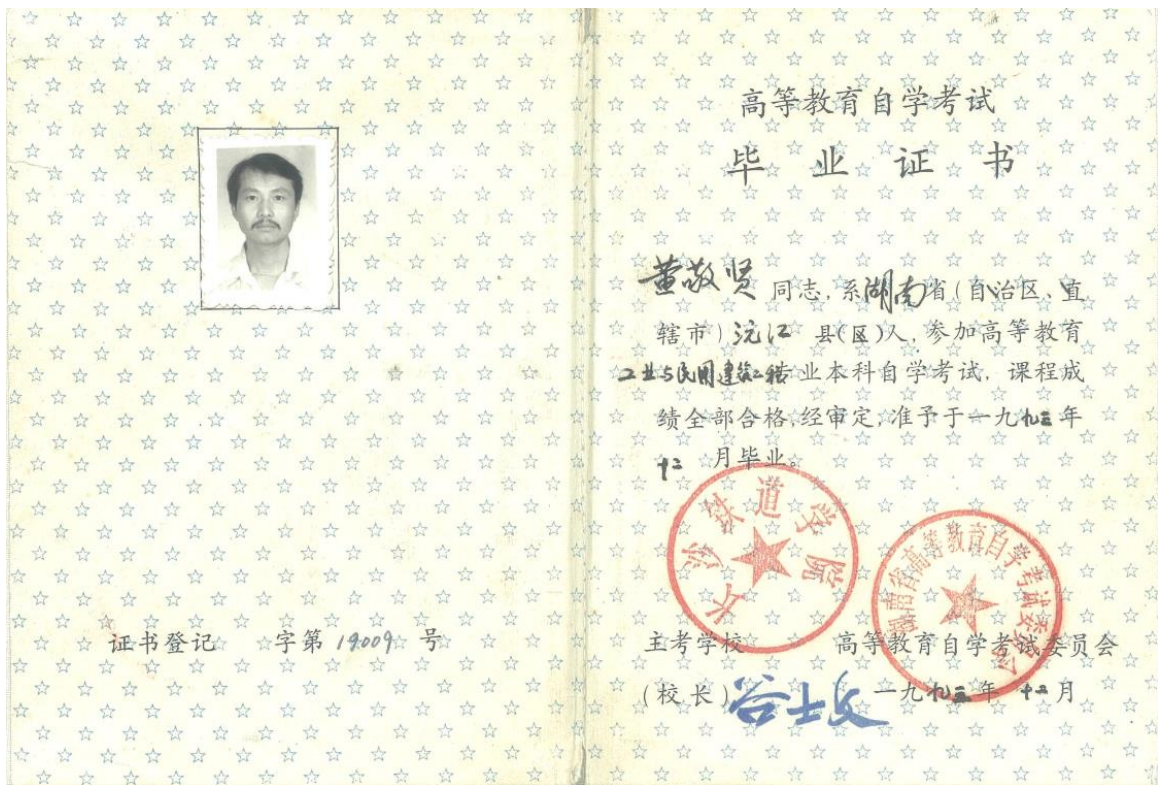 证书登记 字第 19009 号
高等教育自学考试
毕业证书
董敬贤 同志,系湖南省(自治区、直
辖市)沅江 县(区)人,参加高等教育
工业与民用建筑工程专业本科自学考试,课程成
绩全部合格,经审定,准予于一九九三年
十二 月毕业。
长沙铁道学院
湖南省高等教育自学考试委员会
主考学校 高等教育自学考试委员会
(校长)谷士文 一九九三年 十二月